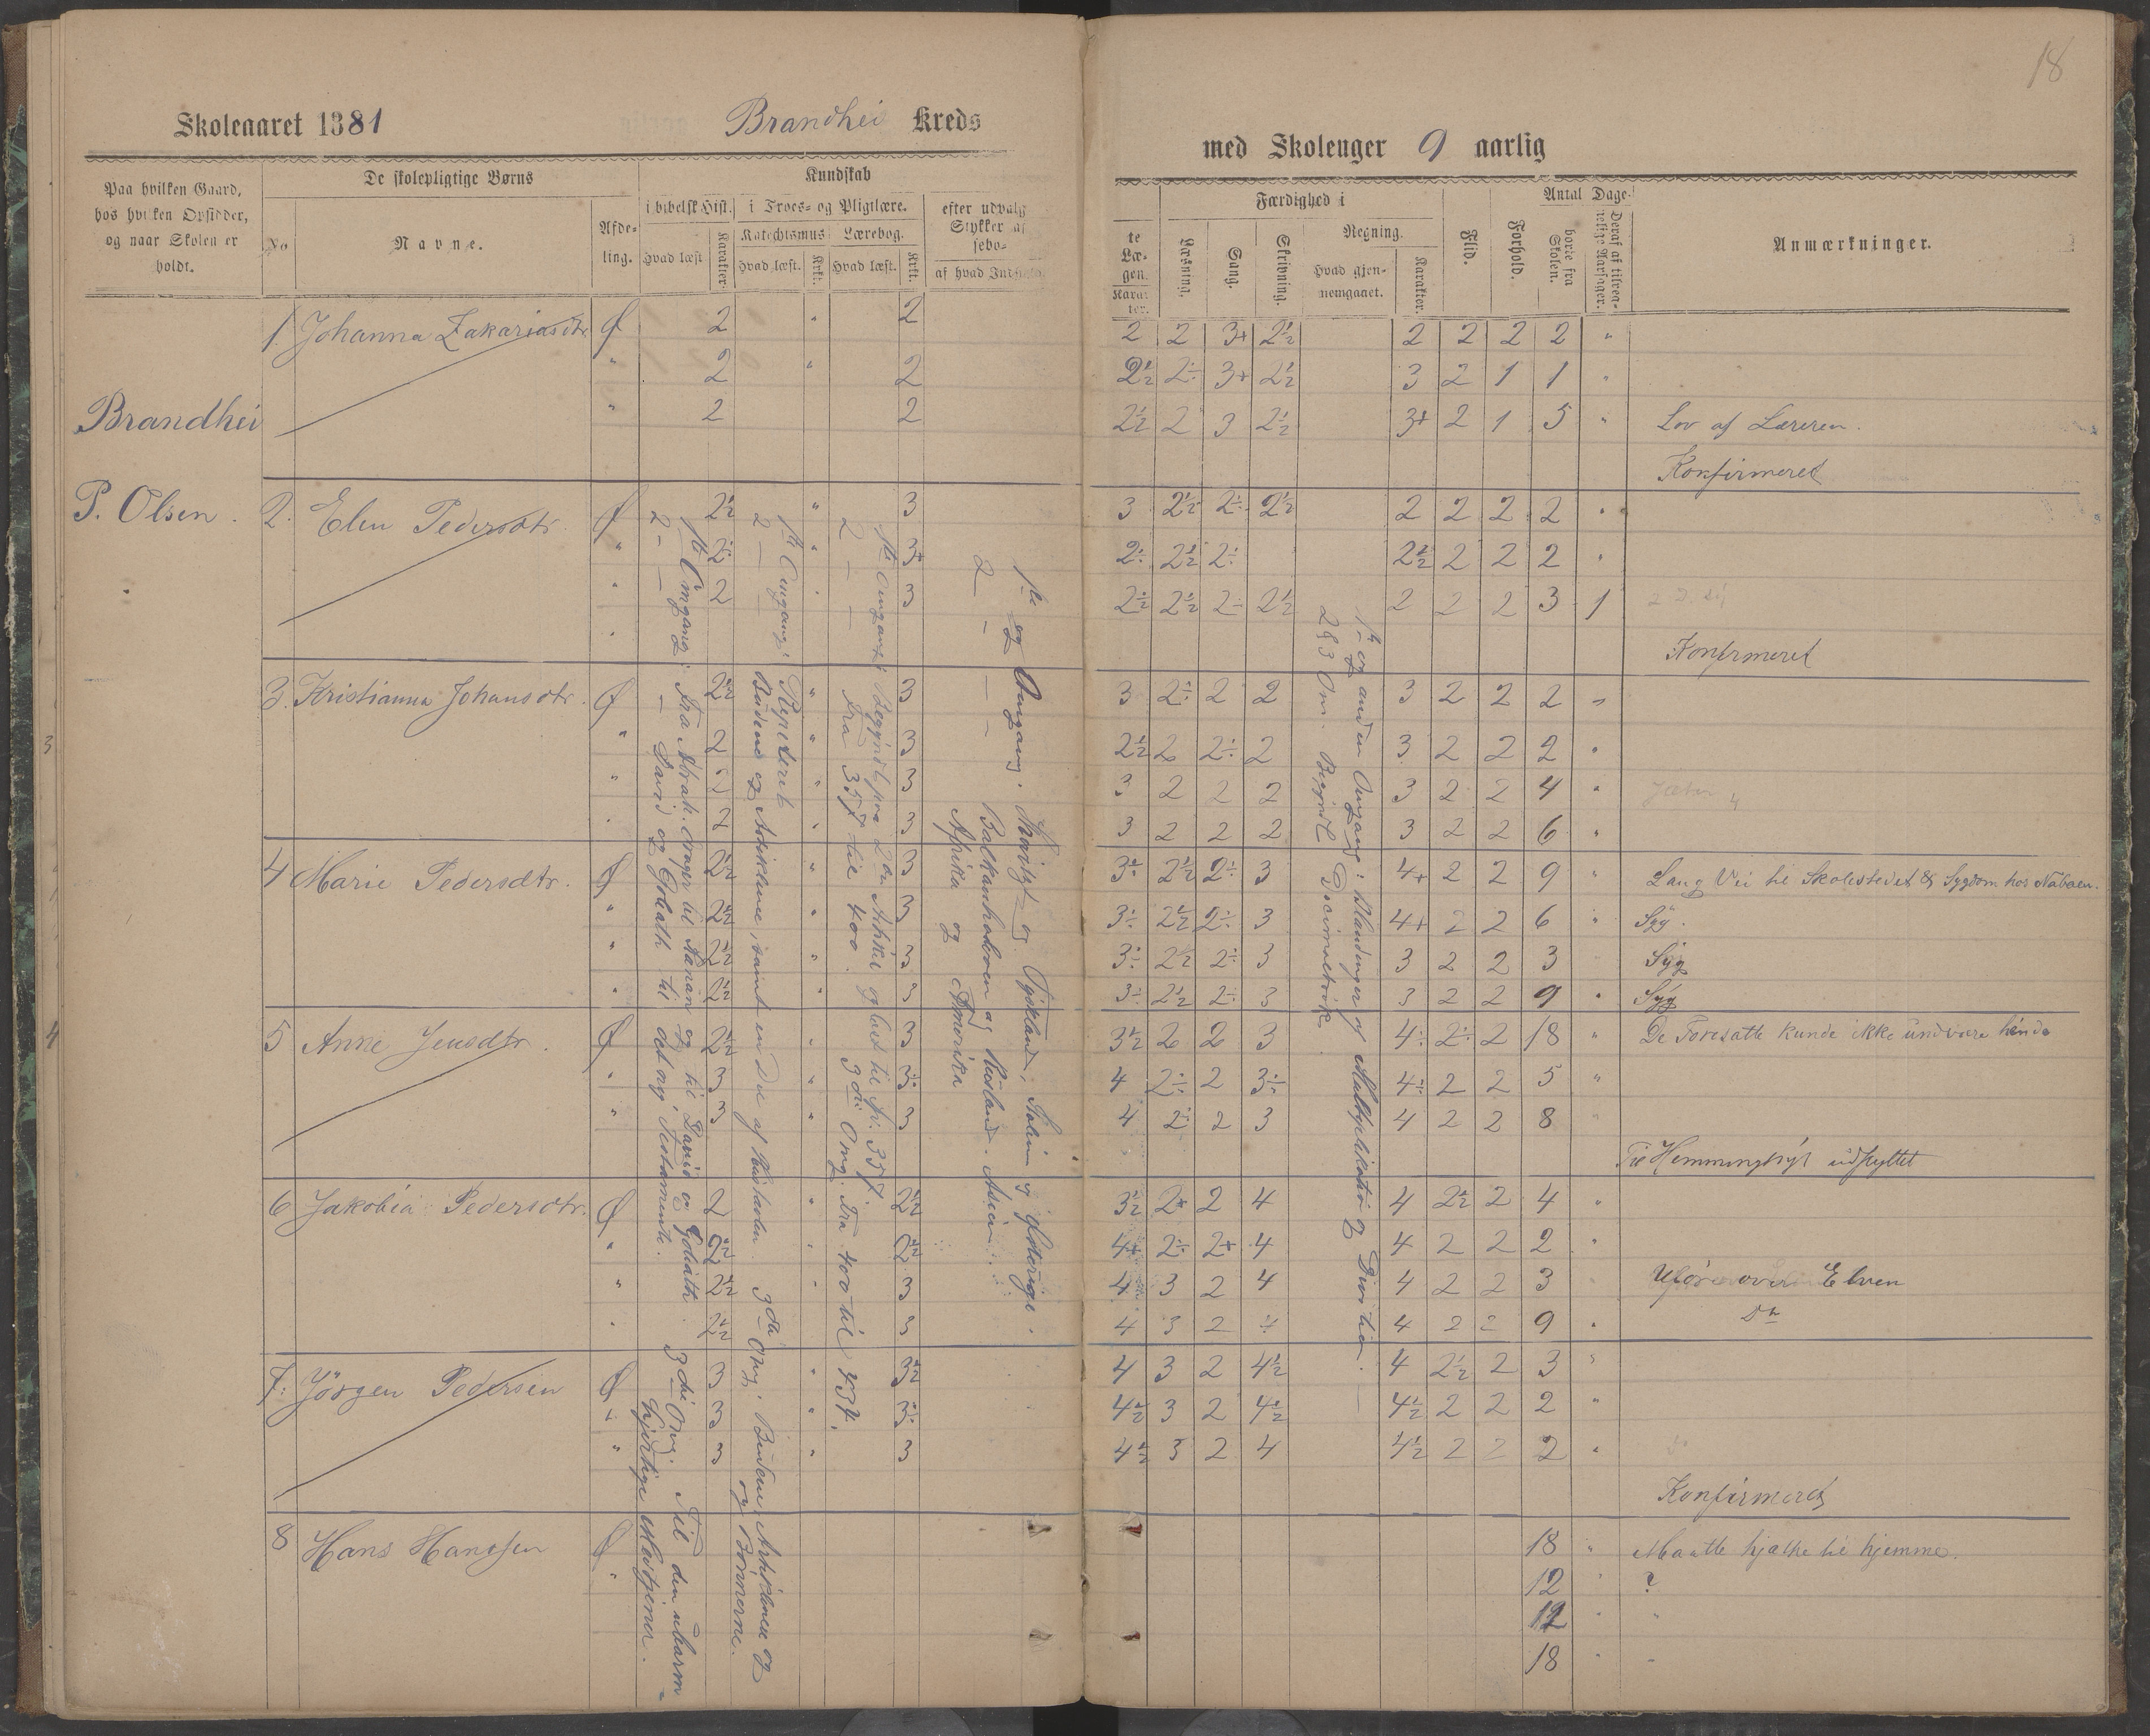 18
Skoleaaret 1881 Brandhei Kreds
med Skoleuger 9 aarlig
Paa hvilken Gaard, hos hvilken Opsidder, og naar Skolen er holdt.
De skolepligtige Børns
No
Navne.
Afdeling.
Kundskab
i bibelsk Hist.
Hvad læst
Karakter.
i Troes- og Pligtlære.
Katechismus
Hvad læst.
Krkt.
Lærebog.
Hvad læst.
Krkt.
efter udvalg
Stykker af
sebo-
af hvad Indhold
te
Læ-
gen.
Karak-
ter.
Færdighed i
Læsning.
Sang.
Skrivning.
Regning.
Hvad gjen-
nemgaaet.
Karakter.
Flid.
Forhold.
Antal Dage.
borte fra Skolen.
Deraf af tilstræ-
Anmærkninger.
Brandhei
P. Olsen.
1. Johanna Zakariasdtr
2 " 2 2 2 3+ 2½ 2 2 2 2 "
" 2 " 2 2½ 2÷ 3+ 2½ 3 2 1 1 "
" 2 2 2½ 2 3 2½ 3+ 2 1 5 " Lov af Læreren.
Konfirmeret
2. Elen Pedersdtr
2½ " 3 3 2½ 2÷ 2½ 2 2 2 2 "
" 2÷ " 3+ 2÷ 2½ 2÷ 2½ 2 2 2 "
" 2 " 3 2½ 2½ 2÷ 2½ 2 2 2 3 1
Konfirmeret
3. Kristianna Johansdtr.
2½ " 3 3 2÷ 2 2 3 2 2 2 "
" 2 " 3 2½ 2 2÷ 2 3 2 2 2 "
" 2 " 3 3 2 2 2 3 2 2 4 "
" 2 " 3 3 2 2 2 3 2 2 6 "
4 Marie Pedersdtr.
2½ " 3 3÷ 2½ 2÷ 3 4+ 2 2 9 " Lang Vei til Skolestedet & Sygdom hos Naboen.
" 2½ " 3 3÷ 2½ 2÷ 3 4+ 2 2 6 " Syg.
" 2½ " 3 3÷ 2½ 2÷ 3 3 2 2 3 Syg
" 2½ " 3 3÷ 2½ 2÷ 3 3 2 2 9 " Syg
5 Anne Jensdtr.
2½ " 3 3½ 2 2 3 4÷ 2÷ 2 18 " De Foresatte kunde ikke undvære hende
" 3 " 3÷ 4 2÷ 2 3÷ 4÷ 2 2 5 "
" 3 " 3 4 2÷ 2 3 4 2 2 8 "
Til udflyttet
6 Jakobia Pedersdtr.
2 " 2½ 3½ 2+ 2 4 4 2½ 2 4 "
" 2½ " 2½ 4+ 2÷ 2+ 4 4 2 2 2 "
" 2½ " 3 4 3 2 4 4 2 2 3 over Elven
" 2½ 3 4 3 2 4 4 2 2 9 " Do
7. Jörgen Pedersen
3 " 3½ 4 3 2 4½ 4 2½ 2 3 "
" 3 " 3÷ 4½ 3 2 4½ 4½ 2 2 2 "
" 3 " 3 4½ 3 2 4 4½ 2 2 2 "
Konfirmeret
8 Hans Hansen
18 " Maatte hjælpe til hjemme.
12 " ?
12 " "
18 " "
1ste Omgang: Fra Abrah. drager til Kanan og til David og Goliath.
2 — — David og Goliath til det ny Testamente.
3die Omg. Til den ubarm-
hjertige Medtjener.
1ste Omgang: Repeteret
2 — Budene og Artiklene, samt en Del af
3die Omg. Budene, Artiklene og
og Bönnerne.
1ste Omgang: Begyndt paa 2den Artikel og læst til Sp. 357.
2 — — Fra 357 til 400.
3die Omg. Fra 400 til 437.
1ste og Omgang. og Tyskland, Italien og Østerige.
2 — — — Balkanhalvøen og Rusland. Asien.
Afrika og Amerika
1ste og anden Omgang: Blandinger af Multiplikation og Division.
2 & 3 Om. Begyndt Decimalbrøk